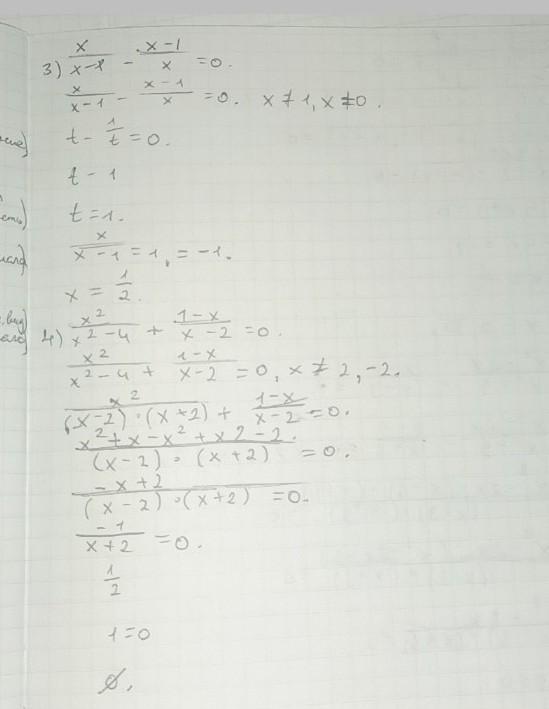 3) x/(x-1) - (x-1)/x = 0.
x/(x-1) - (x-1)/x = 0. x ≠ 1, x ≠ 0.
t - 1/t = 0.
t - 1
t = 1.
x/(x-1) = 1, = -1.
x = 1/2.
4) x²/(x²-4) + (1-x)/(x-2) = 0.
x²/(x²-4) + (1-x)/(x-2) = 0, x ≠ 2, -2.
x²/((x-2)·(x+2)) + (1-x)/(x-2) = 0.
(x²+x-x²+x2-2.)/((x-2)·(x+2)) = 0.
(-x+2)/((x-2)·(x+2)) = 0.
-1/(x+2) = 0.
1/2
1=0
∅.